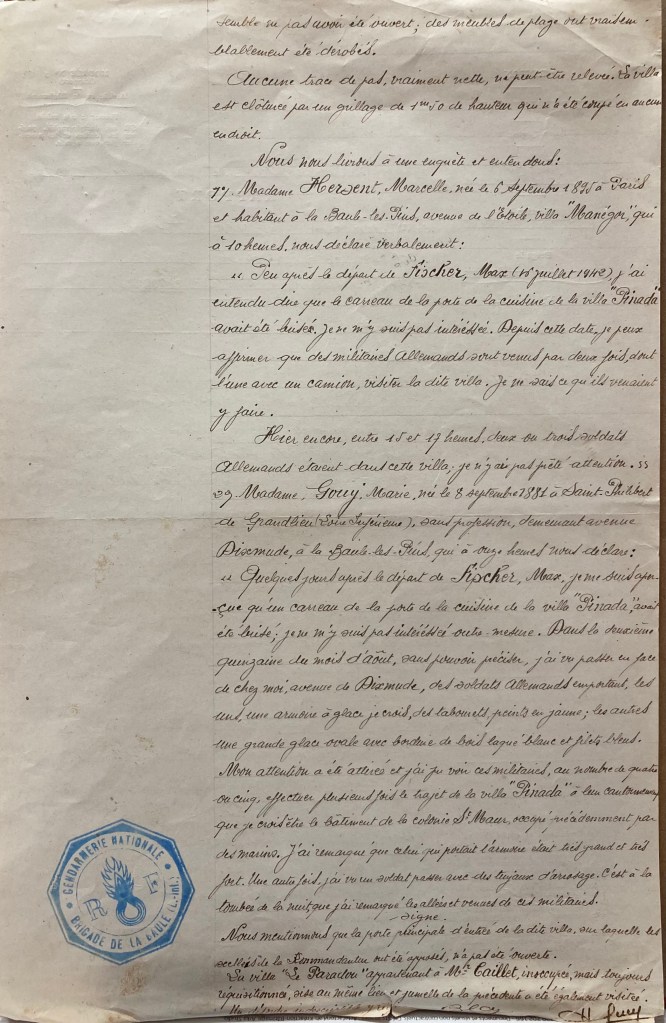 semble ne pas avoir été ouvert; des meubles de plage ont vraisem-
blablement été dérobés.
Aucune trace de pas, vraiment nette, ne peut être relevée. La villa
est clôturée par un grillage de 1m50 de hauteur qui n'a été coupé en aucun
endroit.
Nous nous livrons à une enquête et entendons:
1º/ Madame Hersent, Marcelle, née le 6 septembre 1895 à Paris
et habitant à la Baule-les-Pins, avenue de l'Etoile, villa "Manégor", qui
à 10 heures, nous déclare verbalement:
"Peu après le départ de Fischer, Max (16 juillet 1942), j'ai
entendu dire que le carreau de la porte de la cuisine de la villa "Pinada"
avait été brisé. Je ne m'y suis pas intéressée. Depuis cette date, je peux
affirmer que des militaires Allemands sont venus par deux fois, dont
l'une avec un camion, visiter la dite villa. Je ne sais ce qu'ils venaient
y faire.
Hier encore, entre 15 et 17 heures, deux ou trois soldats
Allemands étaient dans cette villa, je n'y ai pas prêté attention."
2º/ Madame Gouy, Marie, née le 8 septembre 1881 à Saint-Philibert
de Grandlieu (Loire Inférieure), sans profession, demeurant avenue
Dixmude, à la Baule-les-Pins, qui à onze heures nous déclare:
"Quelques jours après le départ de Fischer, Max, je me suis aper-
çue qu'un carreau de la porte de la cuisine de la villa "Pinada", avait
été brisé; je ne m'y suis pas intéréssée outre-mesure. Dans la deuxième
quinzaine du mois d'Août, sans pouvoir préciser, j'ai vu passer en face
de chez moi, avenue de Dixmude, des soldats Allemands emportant, les
uns, une armoire à glace je crois, des tabourets, peints en jaune; les autres
une grande glace ovale avec bordure de bois laqué blanc et filets bleus.
Mon attention a été attirée et j'ai pu voir ces militaires, au nombre de quatre
ou cinq, effectuer plusieurs fois le trajet de la villa "Pinada" à leur cantonnement
que je crois être le bâtiment de la colonie St Maur, occupé précédemment par
des marins. J'ai remarqué que celui qui portait l'armoire était très grand et très
fort. Une autre fois, j'ai vu un soldat passer avec des tuyaux d'arrosage. C'est à la
tombée de la nuit que j'ai remarqué les allées et venues de ces militaires.
Signé.
Nous mentionnons que la porte principale d'entrée de la dite villa, sur laquelle les
scellés de la Kommandantur ont été apposés, n'a pas été ouverte.
La villa "Le Paradou" appartenant à Mr Caillet, inoccupée, mais toujours
réquisitionnée, sise au même lieu et jumelle de la précédente a été également visitée.
GENDARMERIE NATIONALE
BRIGADE DE LA BAULE (L.-Inf.)